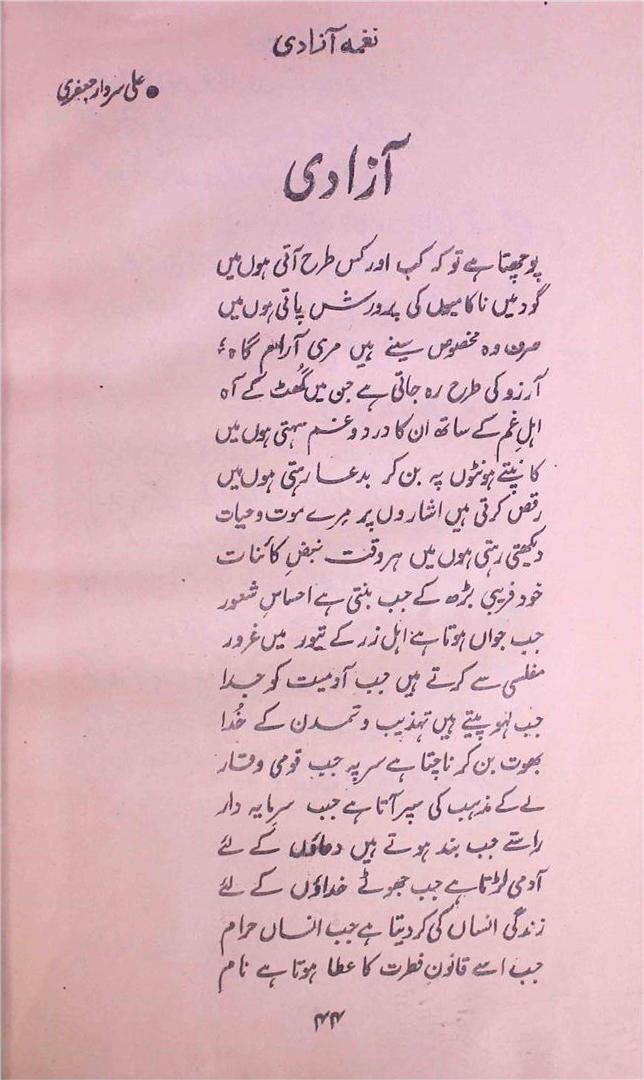 نغمہ آزادی
● علی سردار جعفری
آزادی
پوچھتا ہے تو کہ کب اور کس طرح آتی ہوں میں
گود میں ناکامیوں کی پرورش پاتی ہوں میں
صرف وہ مخصوص سینے ہیں مری آرام گاہ
آرزو کی طرح رہ جاتی ہے جن میں گھٹ کے آہ
اہلِ غم کے ساتھ ان کا درد و غم سہتی ہوں میں
کانپتے ہونٹوں پہ بن کر بددعا رہتی ہوں میں
رقص کرتی ہیں اشاروں پر مرے موت و حیات
دیکھتی رہتی ہوں میں ہر وقت نبضِ کائنات
خود فریبی بڑھ کے جب بنتی ہے احساسِ شعور
جب جواں ہوتا ہے اہلِ زر کے تیور میں غرور
مفلسی سے کرتے ہیں جب آدمیت کو جدا
جب لہو پیتے ہیں تہذیب و تمدن کے خُدا
بھوت بن کر ناچتا ہے سر پہ جب قومی وقار
لے کے مذہب کی سپر آتا ہے جب سرمایہ دار
راستے جب بند ہوتے ہیں دعاؤں کے لئے
آدمی لڑتا ہے جب جھوٹے خداؤں کے لئے
زندگی انساں کی کر دیتا ہے جب انساں حرام
جب اسے قانونِ فطرت کا عطا ہوتا ہے نام
۴۴